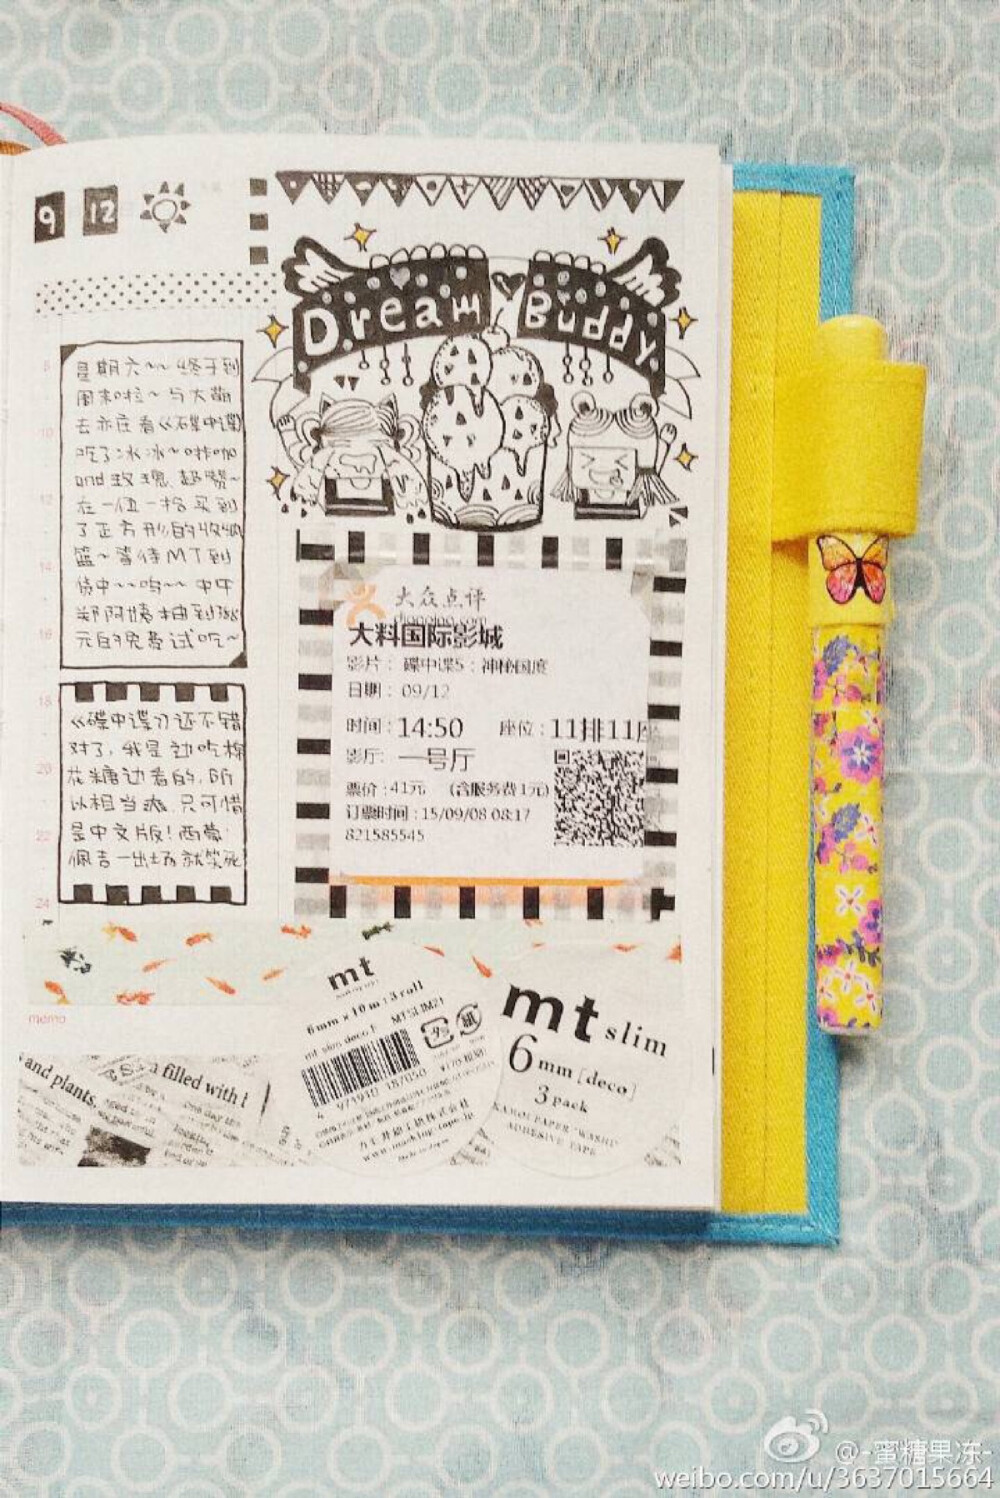 9 12
Dream Buddy
星期六~~终于到
周末啦~与大萌
去亦庄看《碟中谍》
吃了冰冰~咖啡
and玫瑰 超赞~
在一伍一拾买到
了正方形的收纳
篮~等待MT到
货中~~呜~~中午
郑阿姨抽到
元的免费试吃~
《碟中谍》还不错
对了,我是边吃棉
花糖边看的,所
以相当爽.只可惜
是中文版!西蒙·
佩吉一出场就笑死
大众点评
dianping.com
大料国际影城
影片: 碟中谍5:神秘国度
日期: 09/12
时间: 14:50 座位: 11排11座
影厅: 一号厅
票价: 41元 (含服务费1元)
订票时间: 15/09/08 08:17
821585545
8
10
12
14
16
18
20
22
24
memo
and plants,
filled with
mt
6mm x 10m : 3 roll
mt slim deco F MTSLIM21
4 971910 187050
カモ井加工紙株式会社
www.masking-tape.jp
mt slim
6mm [deco]
3 pack
KAMOI PAPER "WASHI"
ADHESIVE TAPE
@-蜜糖果冻-
weibo.com/u/3637015664